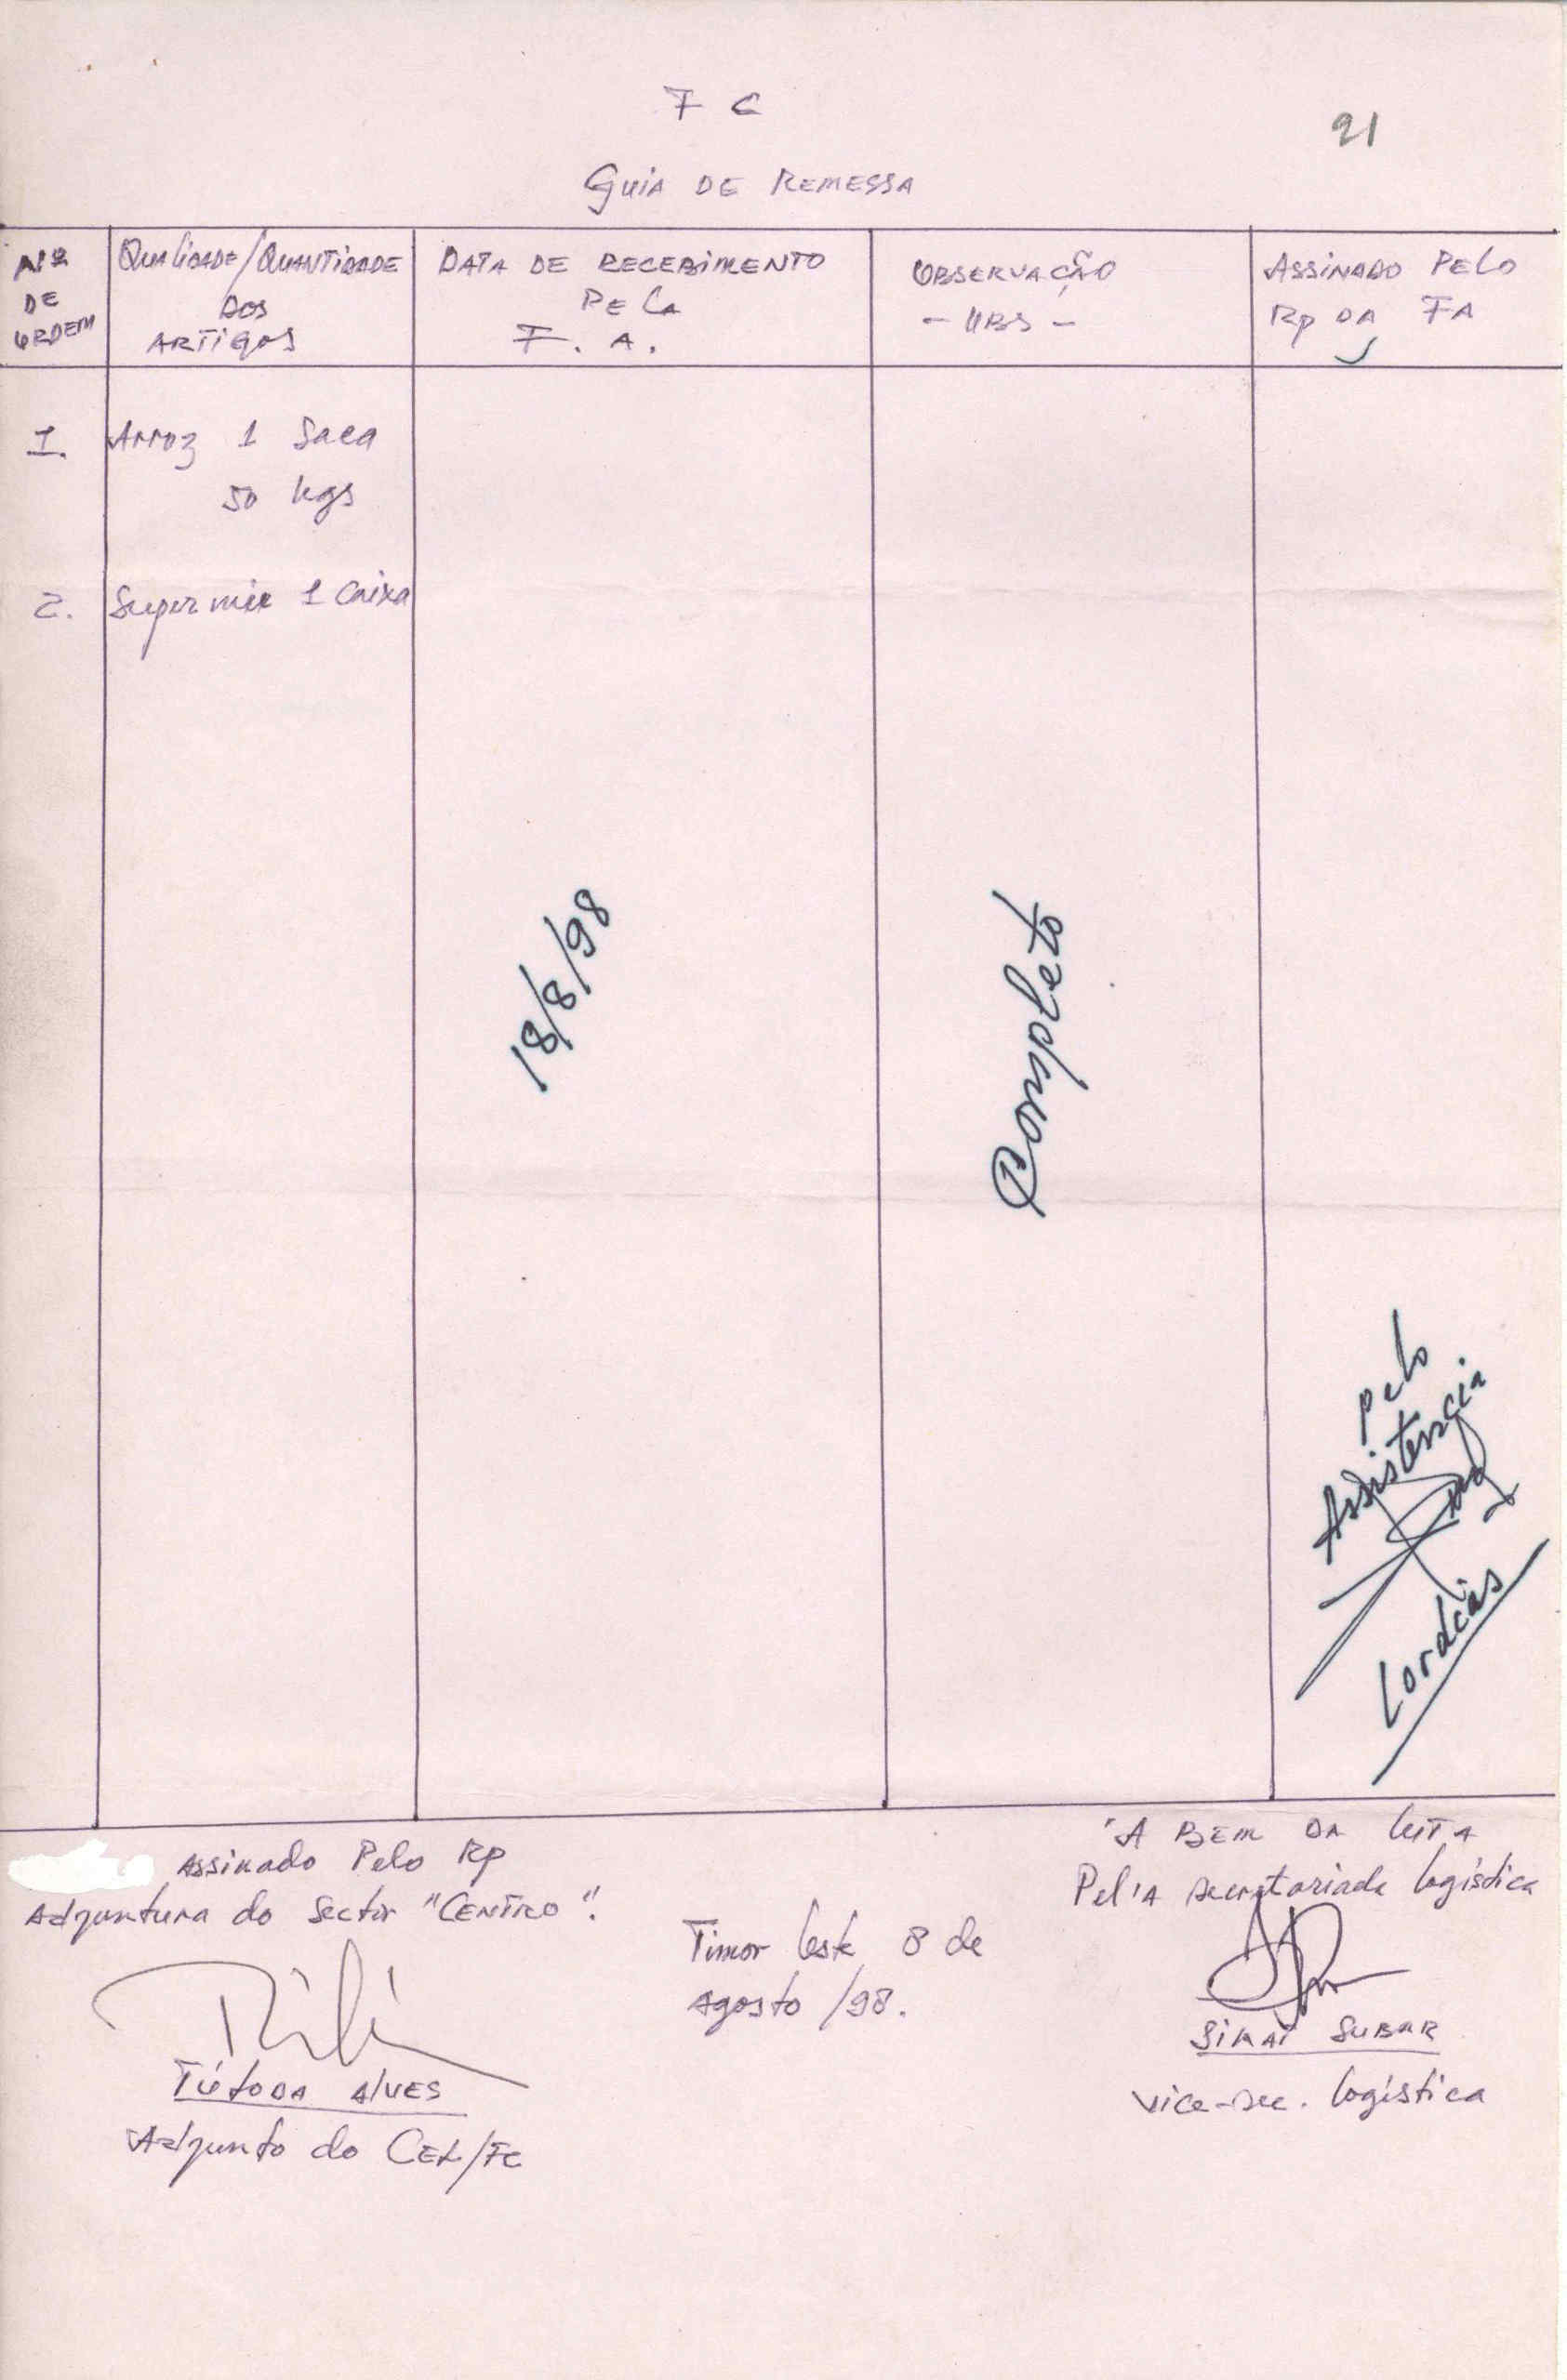 F C
21
GUIA DE REMESSA
Nº
DE
ORDEM
QUALIDADE/QUANTIDADE
DOS
ARTIGOS
DATA DE RECEBIMENTO
PELA
F. A.
OBSERVAÇÃO
- OBS -
ASSINADO PELO
Rp DA FA
1. Arroz 1 Saca
50 kgs
2. Supermie 1 Caixa
18/8/98
Completo
pelo
Assistência
Lordeias
Assinado Pelo Rp
Adjuntura do Sector "CENTRO".
ALVES
Adjunto do CEL/FC
Timor Leste 8 de
Agosto /98.
"A BEM DA LUTA
Pel'A Secretariada logística
SIKAT SUBAR
Vice-Sec. logística